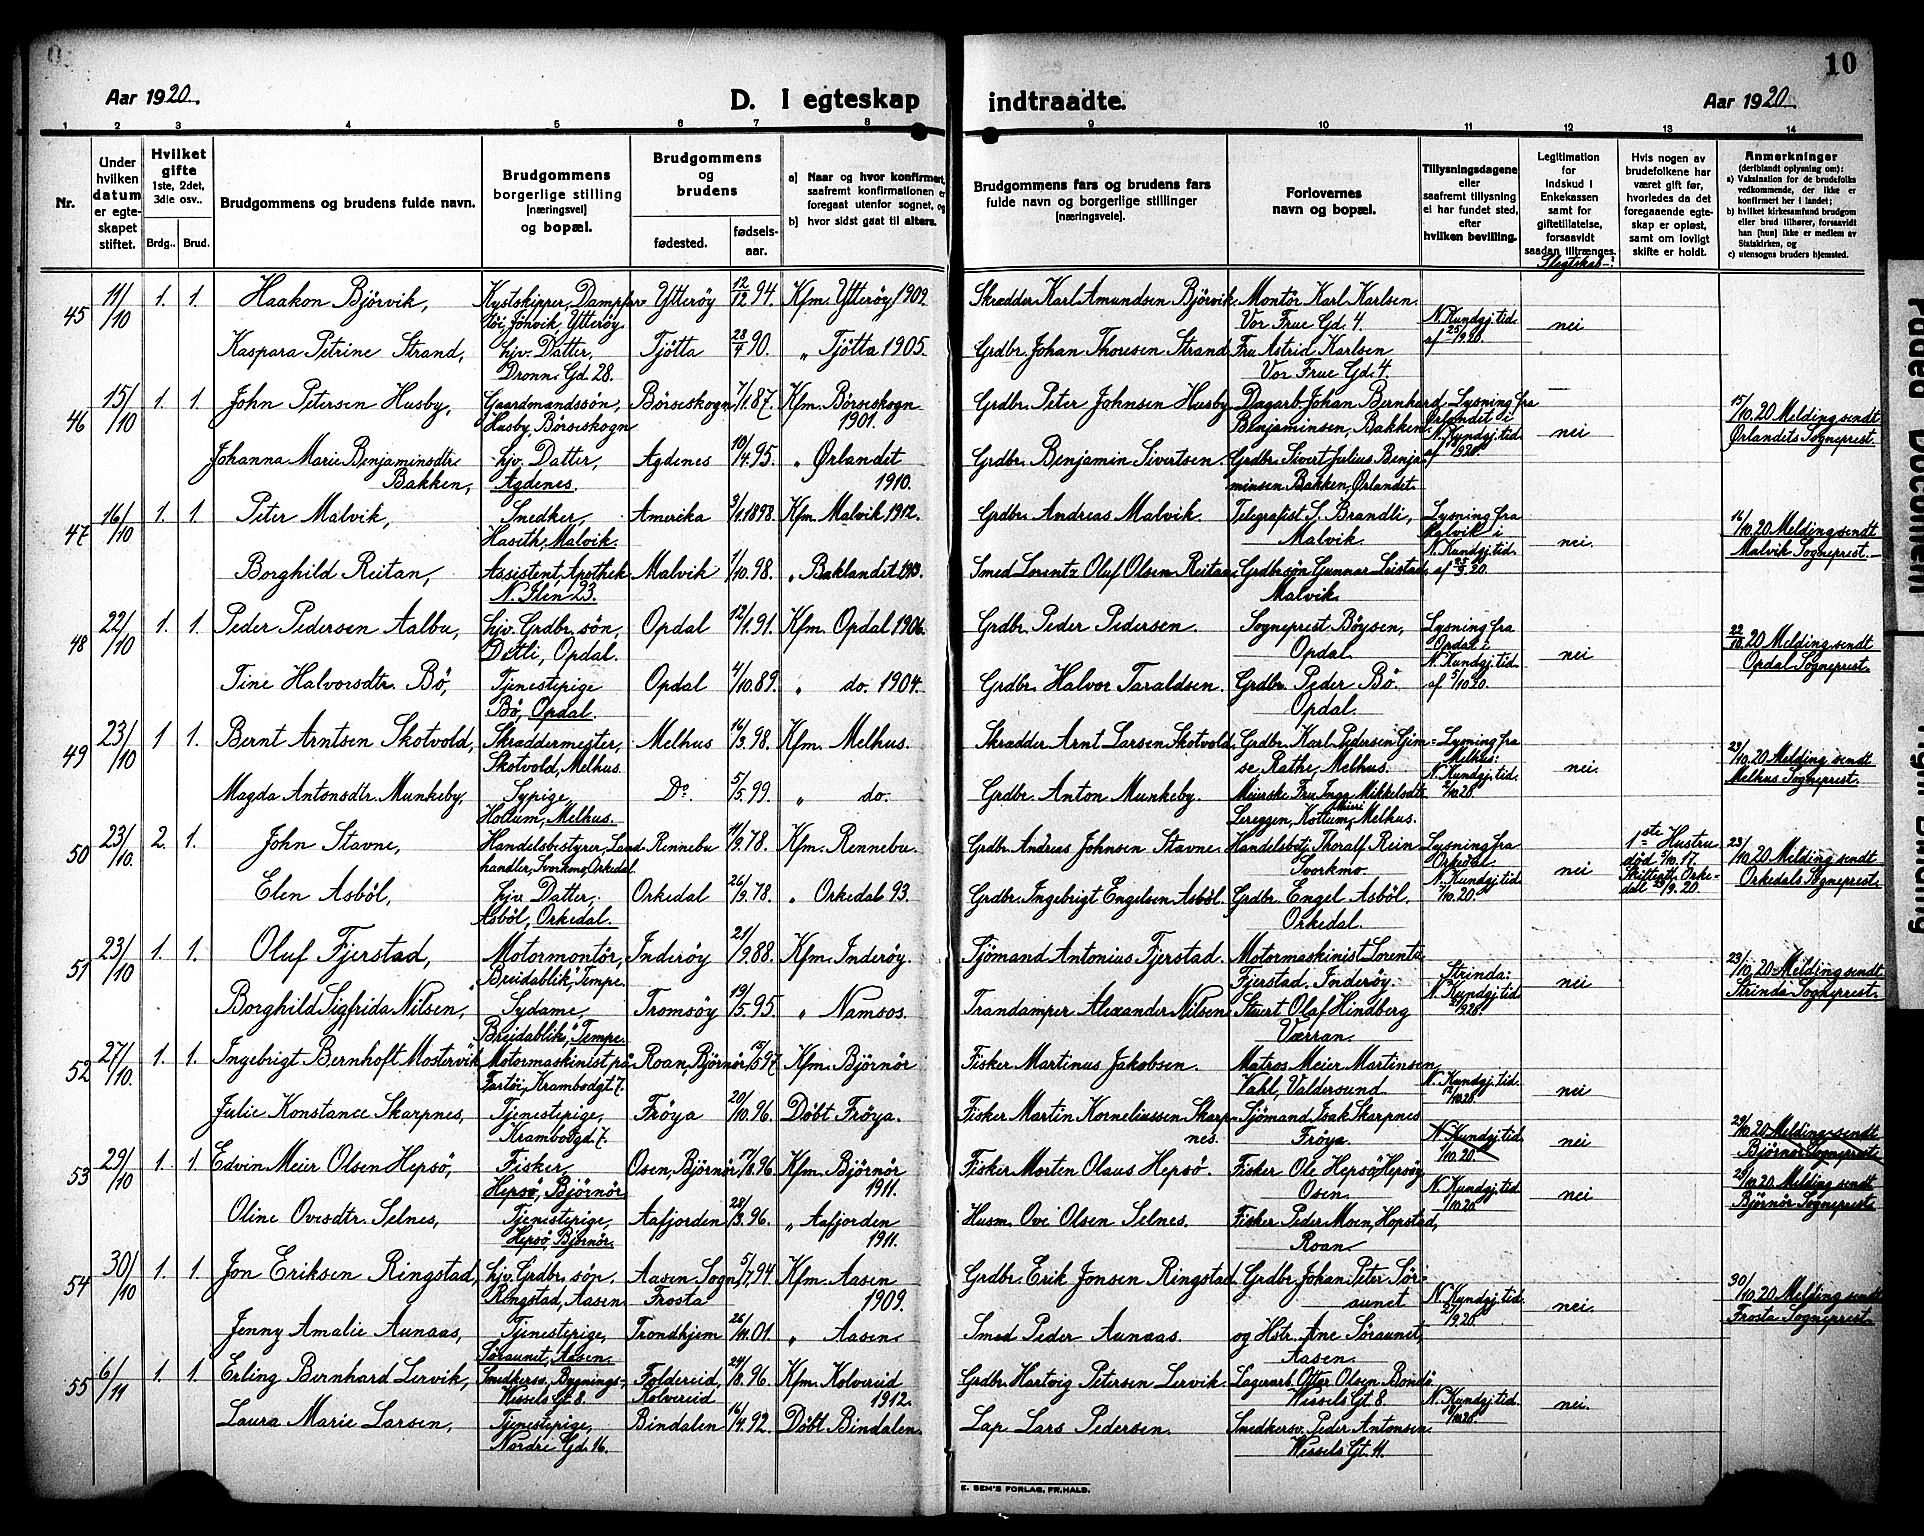 10
Aar 1920.
D. I egteskap indtraadte.
Aar 1920.
1 2 3 4 5 6 7 8 9 10 11 12 13 14
Nr.
Under hvilken datum er egte-skapet stiftet.
Hvilket gifte
1ste, 2det, 3die osv..
Brdg.. Brud.
Brudgommens og brudens fulde navn.
Brudgommens borgerlige stilling [næringsvei] og bopæl.
Brudgommens og brudens
fødested.
fødsels-aar.
a) Naar og hvor konfirmert, saafremt konfirmationen er foregaat utenfor sognet, og
b) hvor sidst gaat til alters.
Brudgommens fars og brudens fars fulde navn og borgerlige stillinger [næringsveie].
Forlovernes navn og bopæl.
Tillysningsdagene eller saafremt tillysning ei har fundet sted, efter hvilken bevilling.
Legitimation for Indskud i Enkekassen samt for giftetillatelse, forsaavidt saadan tiltrænges.
Slegtskab
Hvis nogen av brudefolkene har været gift før, hvorledes da det foregaaende egte-skap er opløst, samt om lovligt skifte er holdt.
Anmerkninger
(deriblandt oplysning om):
a) Vaksination for de brudefolks vedkommende, der ikke er konfirmert her i landet;
b) hvilket kirkesamfund brudgom eller brud tilhører, forsaavidt han [hun] ikke er medlem av Statskirken, og
c) utensogns bruders hjemsted.
45 11/10 1. 1. Haakon Björvik, Kystskipper, Ytterøy 12/12 94. Kfm. Ytterøy 1909. Skrædder Karl Amundsen Björvik. Montör Karl Karlsen.
Jönvik, Ytterøy. Vor Frue Gd. 4. N. Kundgj. tid. nei
Kaspara Petrine Strand, hjv. Datter, Tjötta 90. " Tjötta 1905. Grdbr. Johan Thoresen Strand Fru Astrid Karlsen
Dronn. Gd. 28. Vor Frue Gd. 4.
46 15/10 1. 1. John Petersen Husby, Gaardmandssön, Börseskogn 7/1 87. Kfm. Börseskogn 1901. Grdbr. Peter Johnsen Husby Dagarb. Johan Bernhard Lysning fra 15/10.20 Melding sendt
Husby, Börseskogn Benjaminsen, Bakken Ørlandet i N. Kundgj. tid. nei Ørlandets Sogneprest.
Johanna Marie Benjaminsdtr. Bakken, hjv. Datter, Agdenes. Agdenes 10/4 95. " Ørlandet 1910. Grdbr. Benjamin Sivertsen Grdbr. Sivert Julius Benja-
minsen Bakken, Ørlandet.
47 16/10 1. 1. Peter Malvik, Snedker, Amerika 1898. Kfm. Malvik 1912. Grdbr. Andreas Malvik. Telegrafist S. Brandli, Lysning fra 16/10.20 Melding sendt
Malvik. Malvik. Malvik i N. Kundgj. tid. nei. Malvik Sogneprest.
Borghild Reitan, Assistent, Apothek Malvik 1/10 98. " Baklandet Smed Lorentz Oluf Olsen Reitan, Grdbrsön Gunnar Leistad,
N. Ilen 23. Malvik.
48 22/10 1. 1. Peder Pedersen Aalbu, hjv. Grdbr. sön, Opdal 12/1 91. Kfm. Opdal 1906. Grdbr. Peder Pedersen. Sogneprest Böysen, Lysning fra 22/10.20 Melding sendt
Detli, Opdal. Opdal. Opdal i N. Kundgj. tid. nei Opdal Sogneprest.
Tine Halvorsdtr. Bö, Tjenestepige Opdal 4/10 89. " do. 1904. Grdbr. Halvor Taraldsen. Grdbr. Peder Bö. af 5/10 20.
Bö, Opdal. Opdal.
49 23/10 1 1. Bernt Arntsen Skotvold, Skræddermester, Melhus 98. Kfm. Melhus. Skrædder Arnt Larsen Skotvold Grdbr. Karl Pedersen Gim- Lysning fra 23/10.20 Melding sendt
Skotvold, Melhus. se Melhus. Melhus: N. Kundgj. tid. nei. Melhus Sogneprest.
Magda Antonsdtr. Munkeby, Sypige, Do. 5/5 99. " do. Grdbr. Anton Munkeby. Meierske Fru Inga Mikkelsdtr.
Melhus. Melhus.
50 23/10. 2. 1. John Stavne, Handelsbestyrer, Land- Rennebu 11/9 78. Kfm. Rennebu. Grdbr. Andreas Johnsen Stavne. Handelsbetj. Thoralf Rein Lysning fra 1ste Hustru 23/10.20 Melding sendt
handler, Svorkmo, Orkedal Svorkmo. Orkedal N. Kundgj. tid. nei død Orkedals Sogneprest.
Elen Asböl, hjv. Datter, Orkedal 26/9 78. " Orkedal 93. Grdbr. Ingebrigt Engelsen Asböl. Grdbr. Engel Asböl.
Asböl, Orkedal. Orkedal.
51 23/10 1. 1. Oluf Fjerstad, Motormontör, Inderöy 21/9 88. Kfm. Inderöy. Sjömand Antonius Fjerstad. Motormaskinist Lorents 23/10.20 Melding sendt
"Breidablik", Tempe. Fjerstad, Inderöy. Strinda: N. Kundgj. tid nei Strinda Sogneprest.
Borghild Sigfrida Nilsen, Sydame, Tromsöy 19/5 95. " Namsos. Trandamper Alexander Nilsen Stuert Olaf Hindberg
"Breidablik", Tempe. Værran.
52 27/10. 1. 1. Ingebrigt Bernhoft Mostervik Motormaskinist paa Roan, Björnör, 97. Kfm. Björnör Fisker Martinus Jakobsen. Matros Meier Martinsen
Fartöi, Krambodgt. 7. Vahl, Valdersund. N. Kundgj. tid. nei
Julie Konstance Skarpnes, Tjenestepige, Fröya 20/10. 96. Döbt Fröya. Fisker Martin Korneliussen Skarp-nes. Sjömand Isak Skarpnes
Krambodgd. 7. Fröya. N. Kundgj. tid. nei 29/10.20 Melding sendt
Björnör Sogneprest.
53 29/10 1. 1. Edvin Meier Olsen Hepsö, Fisker, Osen, Björnör 96. Kfm. Björnör 1911. Fisker Morten Olaus Hepsö. Fisker Ole Hepsö, Hepsöy 29/10.20 Melding sendt
Hepsö, Björnör Osen. N. Kundgj. tid. nei Björnör Sogneprest.
Oline Ovesdtr. Selnes, Tjenestepige, Aafjorden 28/3 96. " Aafjorden 1911. Husm. Ove Olsen Selnes. Fisker Peder Moen, Hopstad,
Hepsö, Björnör. Roan.
54 30/10 1. 1. Jon Eriksen Ringstad, hjv. Grdbr. sön. Aasen Sogn, 5/7 94. Kfm. Aasen 1909. Grdbr. Erik Jonsen Ringstad Grdbr. Johan Peter Sör-
Ringstad, Aasen Frosta aunet N. Kundgj. tid. nei. 30/10.20 Melding sendt
Jenny Amalie Aunaas, Tjenestepige, Trondhjem 01. " Aasen. Smed Peder Aunaas. og Hstr. Ane Söraunet, Frosta Sogneprest.
Söraunet, Aasen. Aasen.
55 6/11 1. 1. Erling Bernhard Lervik, Smedkersv. Bygnings-, Foldereid, 24/8 96. Kfm. Kolvereid 1912. Grdbr. Hartvig Petersen Lervik. Lagerarb. Ottar Olsen Bondö
Wessels Gt. 8. Kolvereid Wessels Gt. 8. N. Kundgj. tid nei.
Laura Marie Larsen, Tjenestepige, Bindalen 16/4. 92. Döbt Bindalen. Lap Lars Pedersen. Smedkersv. Peder Antonsen.
Nordre Gd. 16. Wessels Gt. 11.
E. SEM'S FORLAG, FR.HALD.